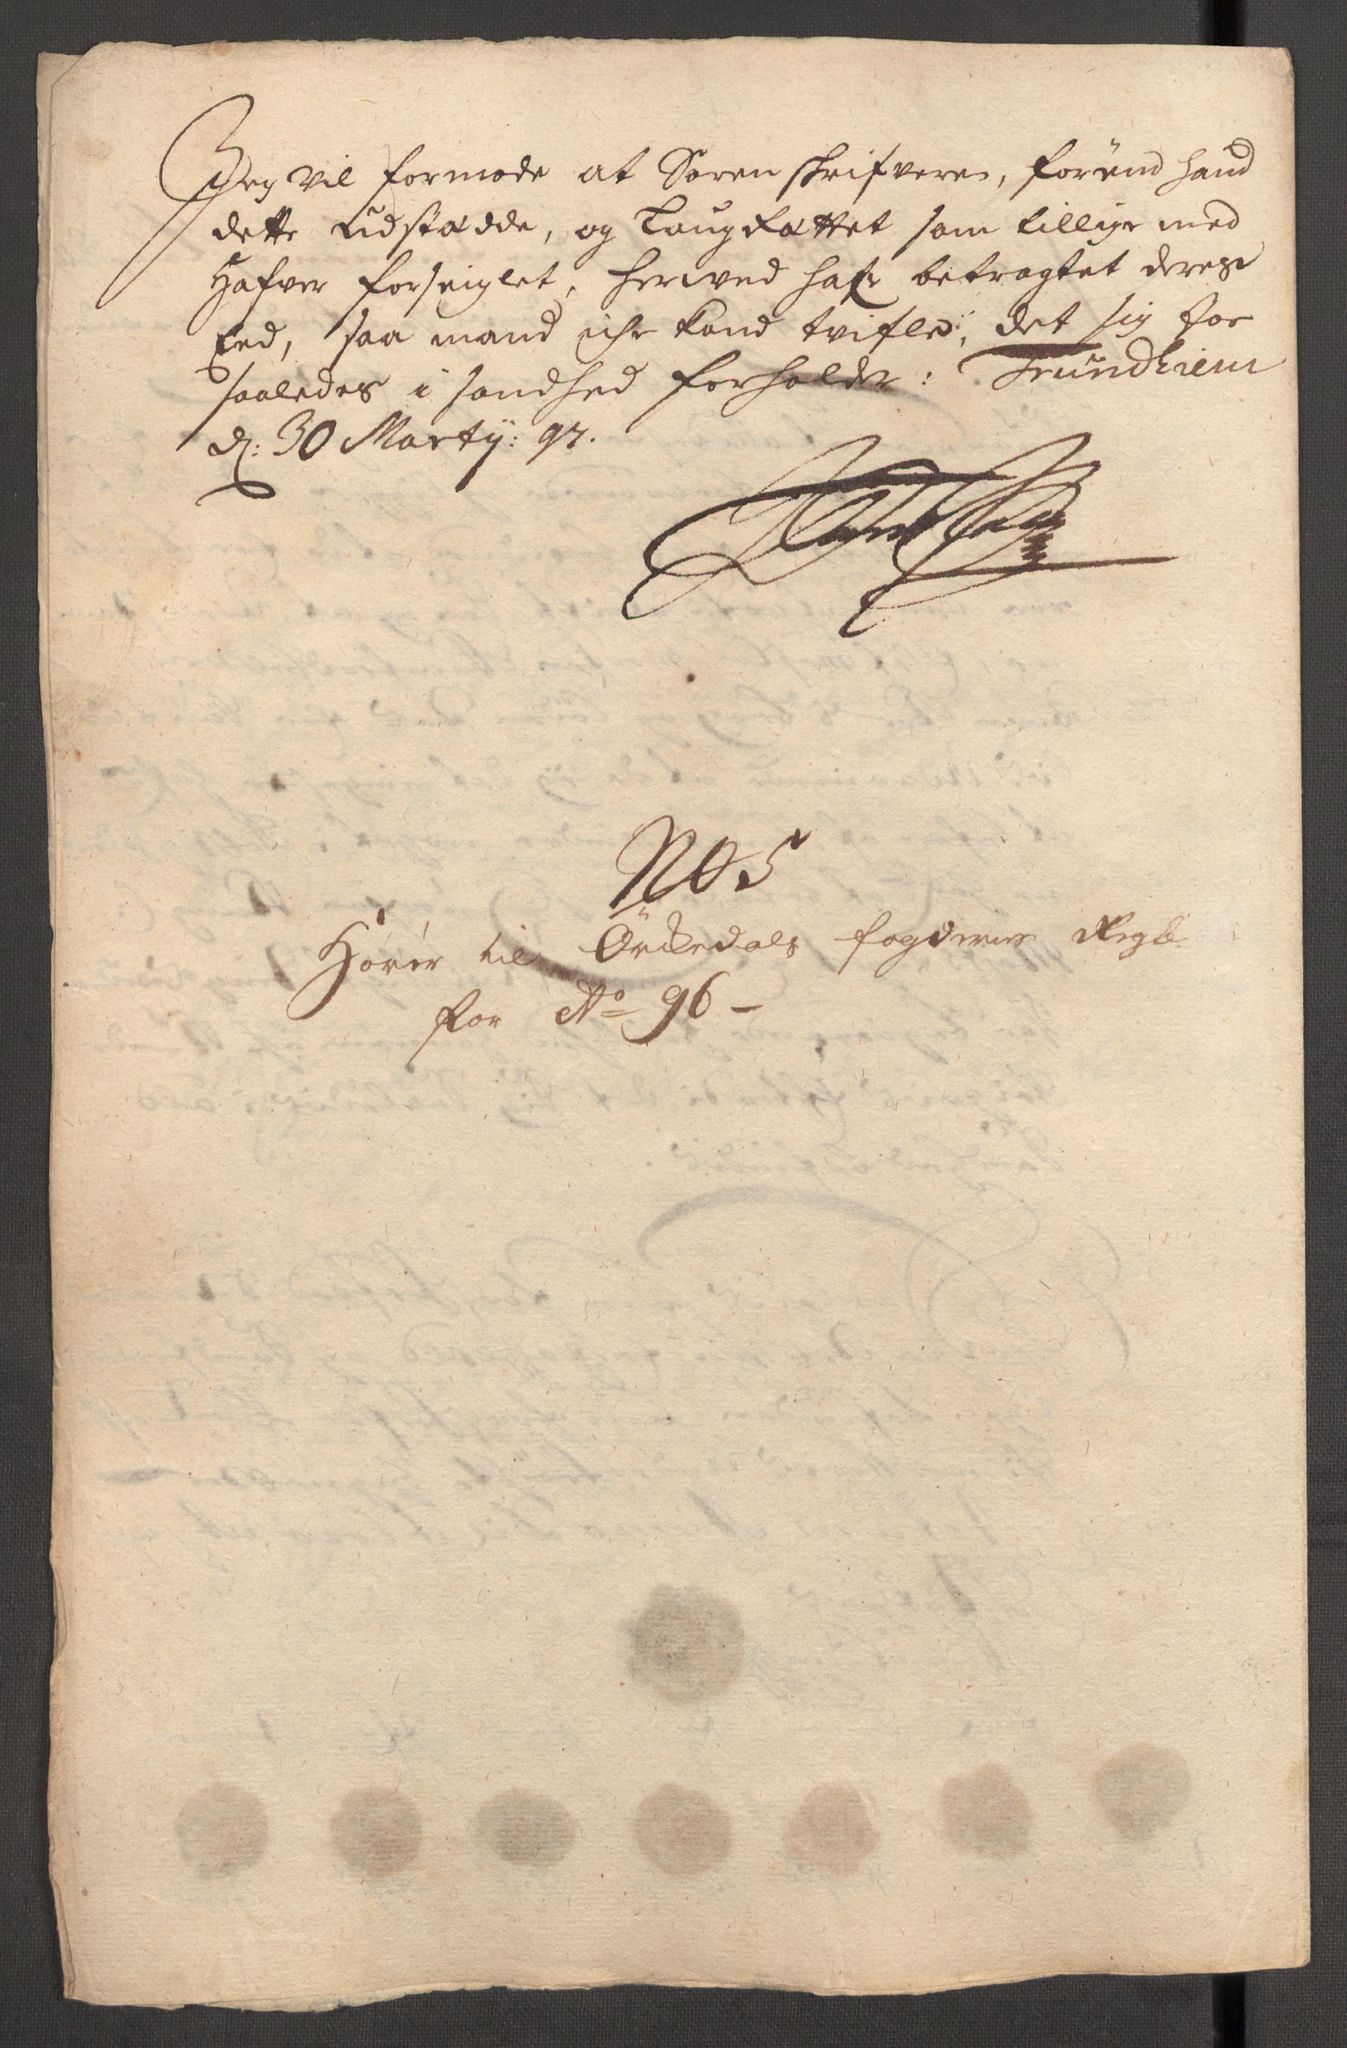 Jeg vil formode at Sorenskrifveren, förend hand
dette udstædde, og Laugrættet som tillige med
Hafver forseiglet, herved hafr betragtet deres
Eed, saa mand iche kand tvifle, det sig jo
saaledes i sandhed forholder: Trundhiem
d: 30 Martij: 97.
No 5
Hörer til Örckedals fogderies Regb
for Ao 96 –